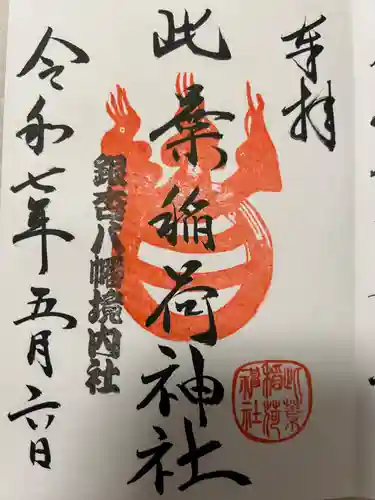 奉拝
此葉稲荷神社
銀杏八幡境内社
令和七年五月六日
此葉稲荷神社